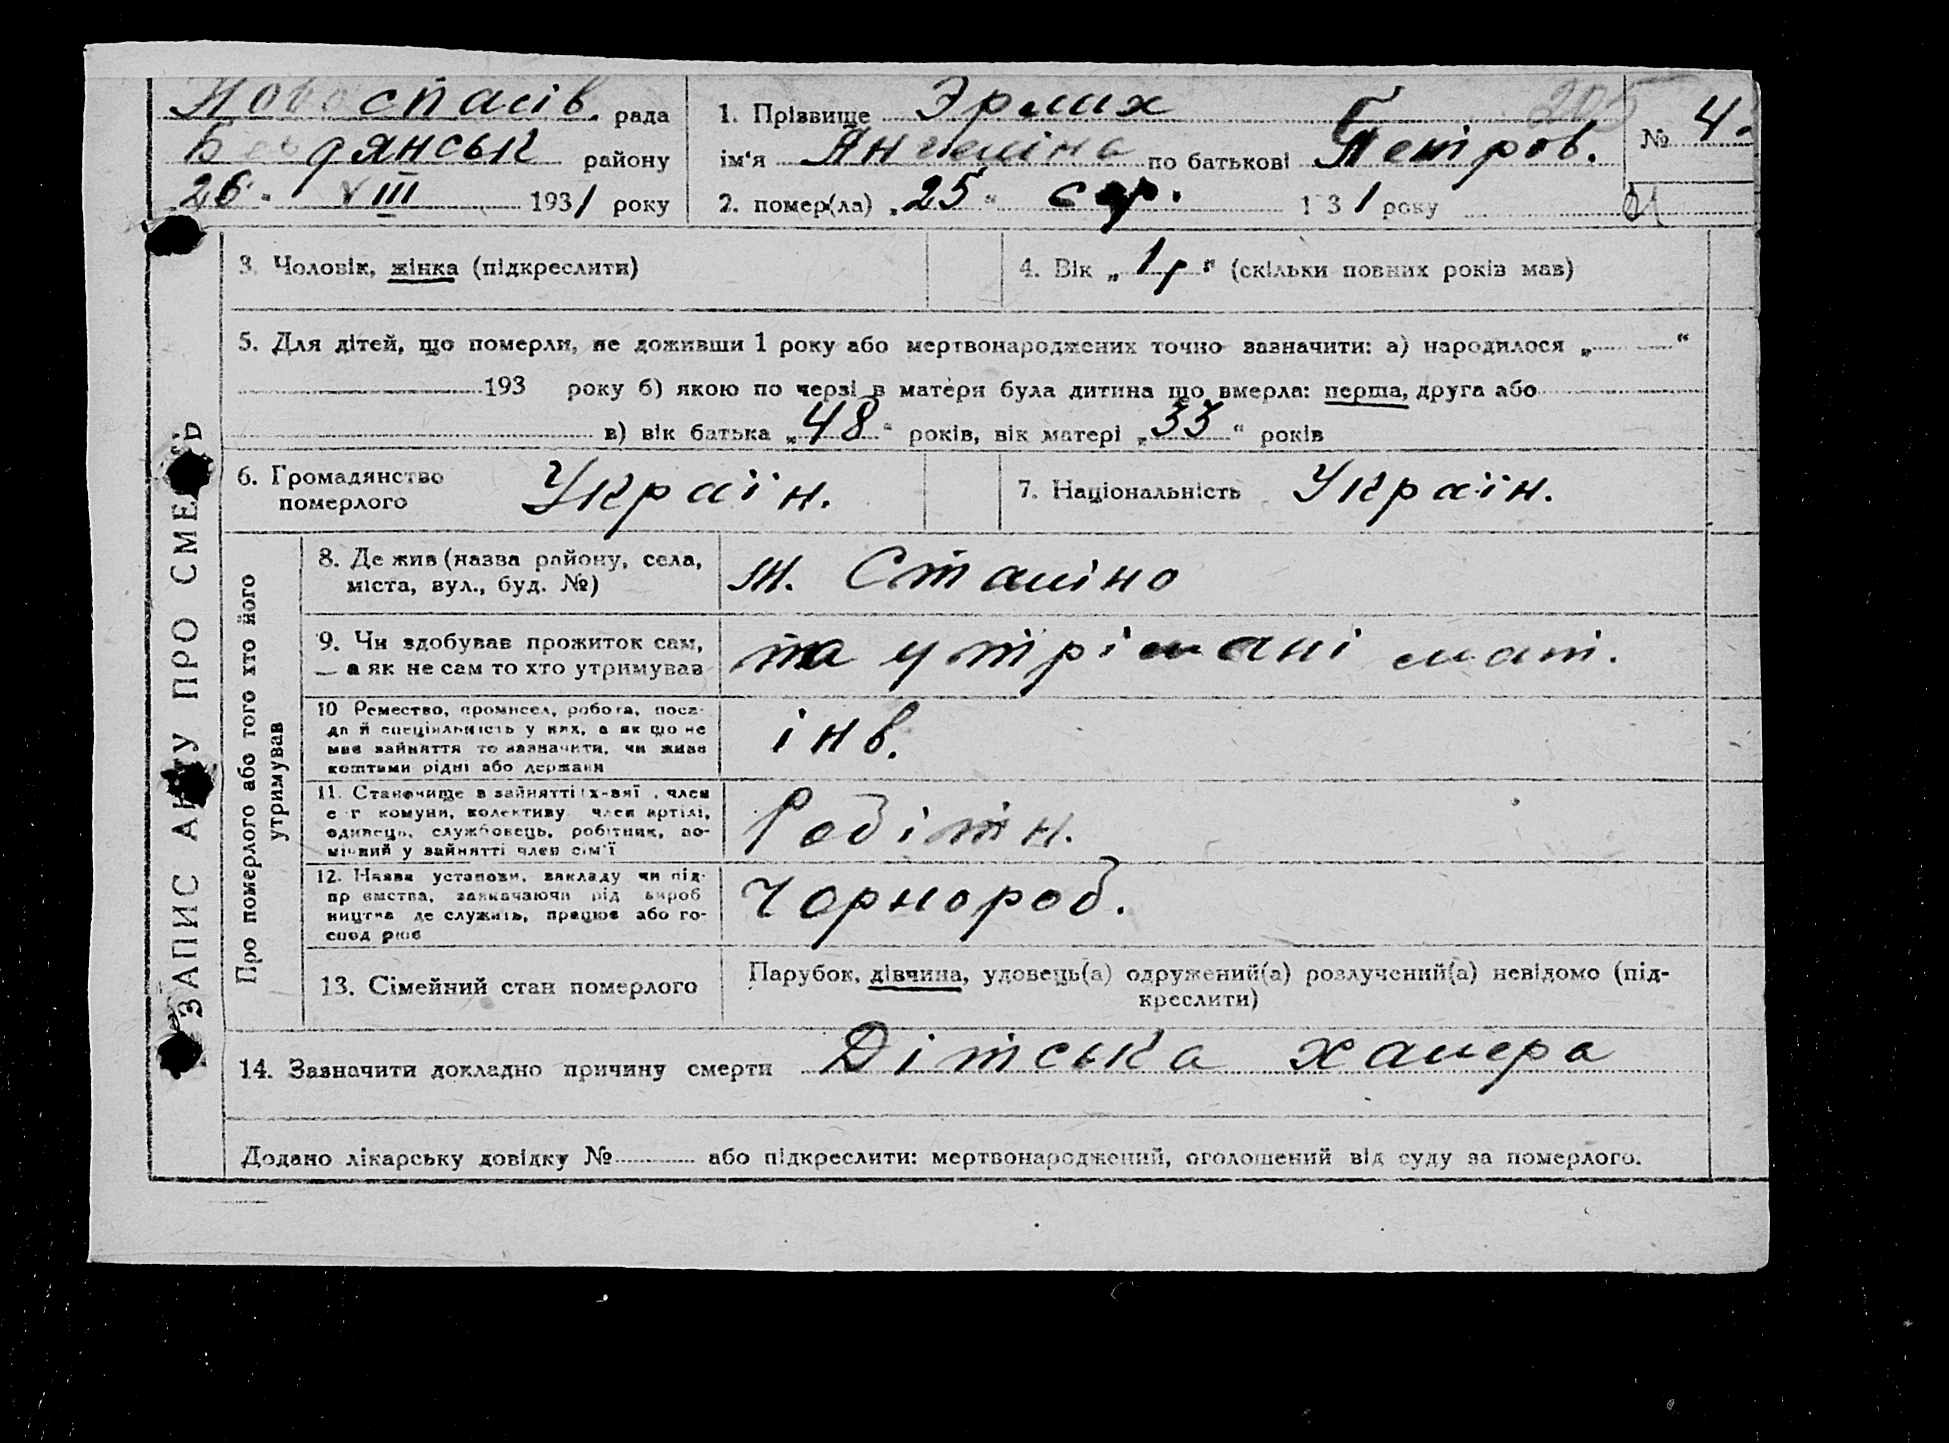 Новоспасів. рада
Бердянськ району
26 " VIII 1931 року
1. Прізвище Эрлих
ім'я Ангеліна по батькові Петров.
2. помер(ла) „25" сер. 1 31 року
205
№ 4.
ЗАПИС АКТУ ПРО СМЕРТЬ
3. Чоловік, жінка (підкреслити)
4. Вік „1 р" (скільки повних років мав)
5. Для дітей, що померли, не доживши 1 року або мертвонароджених точно зазначити: а) народилося „ “
193 року б) якою по черзі в матери була дитина що вмерла: перша, друга або
в) вік батька „48" років, вік матері „33" років
6. Громадянство
померлого
Україін.
7. Національність Україін.
Про померлого або того хто його
утримував
8. Де жив (назва району, села,
міста, вул., буд. №)
м. Сталіно
9. Чи здобував прожиток сам,
— а як не сам то хто утримував
на утрімані мат.
10 Ремество, промисел, робота, поса-
да й спеціяльність у них, а як що не
мав зайняття то зазначити, чи живе
коштами рідні або держави
інв.
11. Становище в зайнятті , член
с г комуни, колективу член артілі,
одинець, службовець, робітник, по-
мічний у зайнятті член сім'ї
Робітн.
12. Назва установи, закладу чи під-
пр ємства, зазначаючи рід вироб
ництва де служить, працює або го-
спод рює
Чорнороб.
13. Сімейний стан померлого
Парубок, дівчина, удовець(а) одружений(а) розлучений(а) невідомо (під-
креслити)
14. Зазначити докладно причину смерти Дітська халера
Додано лікарську довідку № або підкреслити: мертвонароджений, оголошений від суду за померлого.